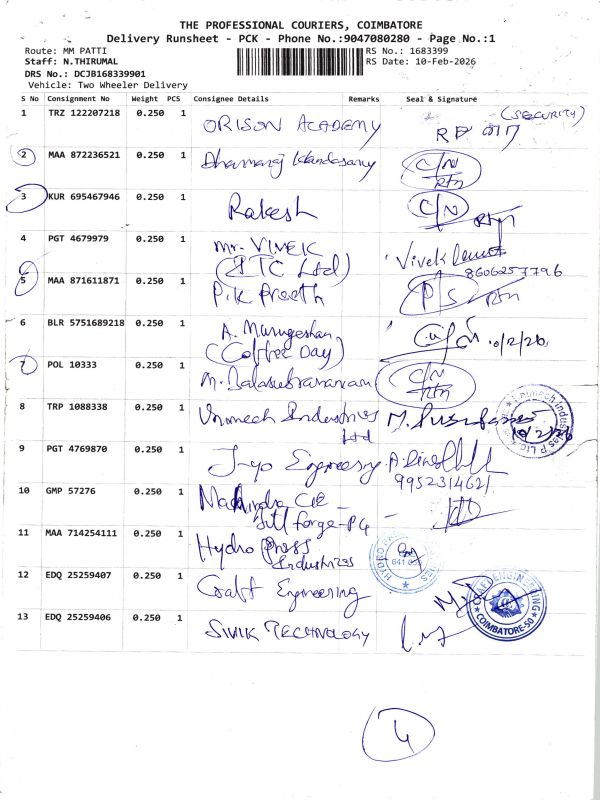 THE PROFESSIONAL COURIERS, COIMBATORE
Delivery Runsheet - PCK - Phone No.:9047080280 - Page No.:1
Route: MM PATTI
RS No.: 1683399
Staff: N.THIRUMAL
RS Date: 10-Feb-2026
DRS No.: DCJB168339901
Vehicle: Two Wheeler Delivery
S No Consignment No Weight PCS Consignee Details Remarks Seal & Signature
1 TRZ 122207218 0.250 1 ORISON ACADEMY (SECURITY)
2 MAA 872236521 0.250 1 C/N
Rtn
3 KUR 695467946 0.250 1 Rakesh C/N Rtn
4 PGT 4679979 0.250 1 Mr. VIVEK Vivek
(ITC Ltd) 8606257796
5 MAA 871611871 0.250 1 P.K Preeth P/S Rtn
6 BLR 5751689218 0.250 1 A. Murugeshan 10/2/26
(Coffee Day)
7 POL 10333 0.250 1 M. Balasubramaniam C/N
Rtn
8 TRP 1088338 0.250 1 Unimech Industries
Ltd 10/2/26
9 PGT 4769870 0.250 1 Engineering
9952314621
10 GMP 57276 0.250 1 Mahindra CIE -
forge - P4
11 MAA 714254111 0.250 1 Hydro Press
Industries
12 EDQ 25259407 0.250 1 Craft Engineering
COIMBATORE-50
13 EDQ 25259406 0.250 1 SIVIK TECHNOLOGY
4